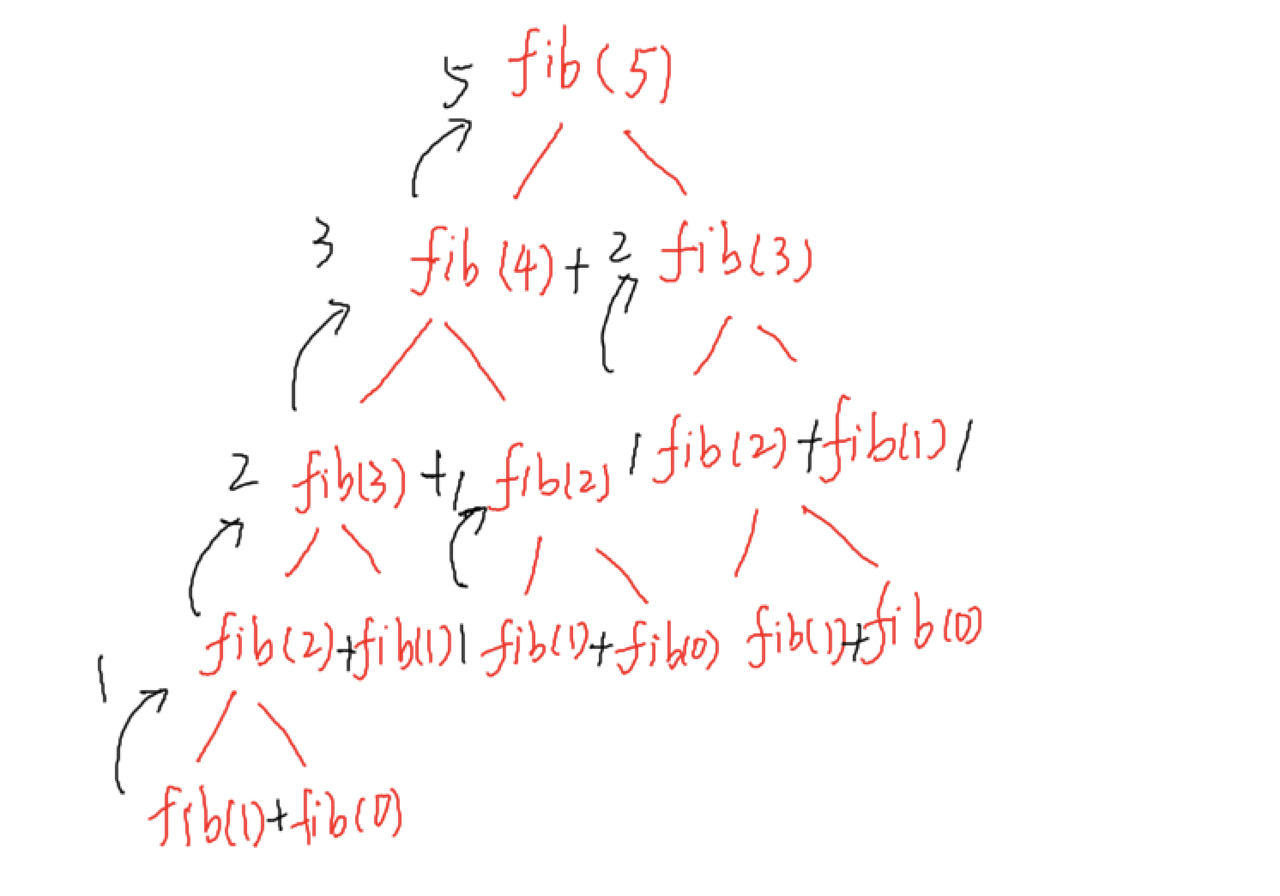 5 fib(5)
3 fib(4) + 2 fib(3)
2 fib(3) + 1 fib(2) 1 fib(2) + fib(1) 1
1 fib(2) + fib(1) 1 fib(1) + fib(0) fib(1) + fib(0)
fib(1) + fib(0)